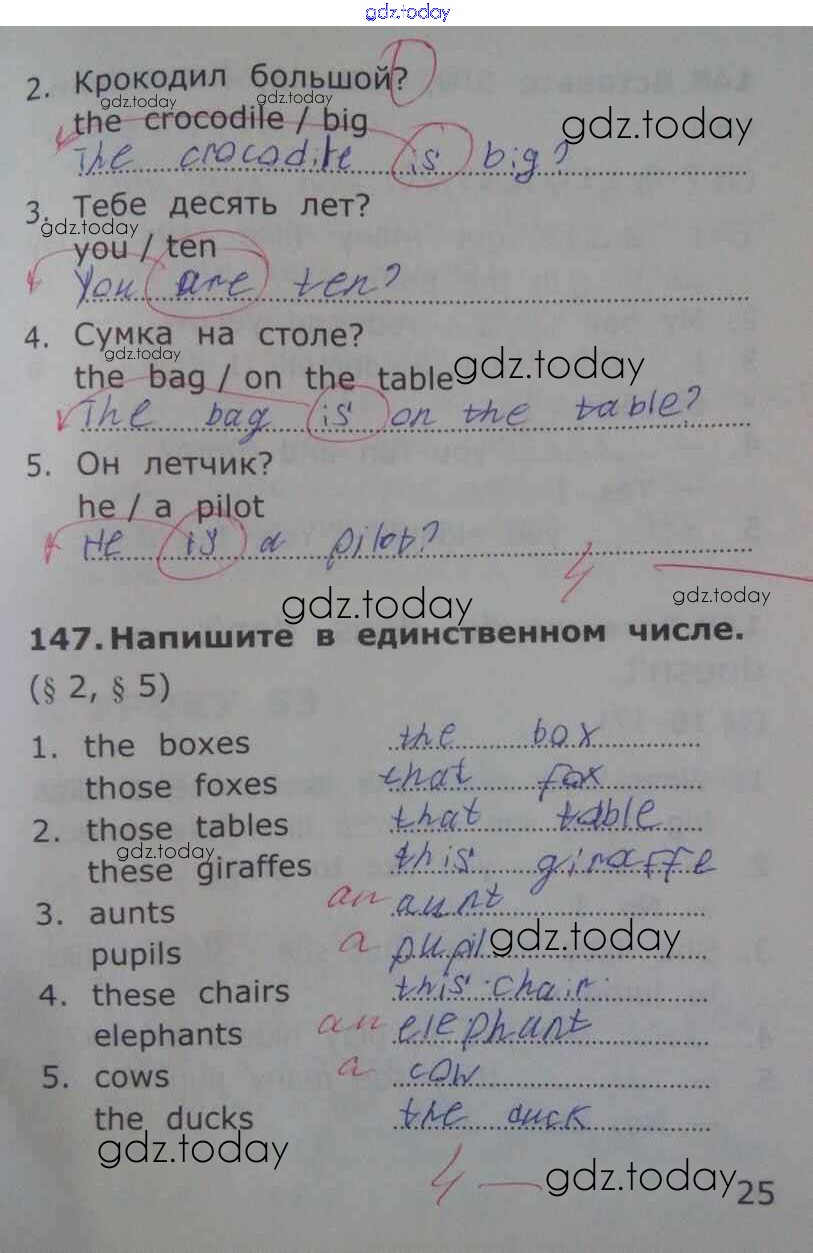 gdz.today
2. Крокодил большой?
gdz.today gdz.today
the crocodile / big
gdz.today
The crocodile is big?
3. Тебе десять лет?
gdz.today
you / ten
You are ten?
4. Сумка на столе?
gdz.today
the bag / on the table
gdz.today
The bag is on the table?
5. Он летчик?
he / a pilot
He is a pilot?
4 —
gdz.today gdz.today
147. Напишите в единственном числе.
(§ 2, § 5)
1. the boxes the box
those foxes that fox
2. those tables that table
gdz.today
these giraffes this giraffe
3. aunts an aunt
pupils a pupil
gdz.today
4. these chairs this chair
elephants an elephant
5. cows a cow
the ducks the duck
gdz.today
4 —
gdz.today
25